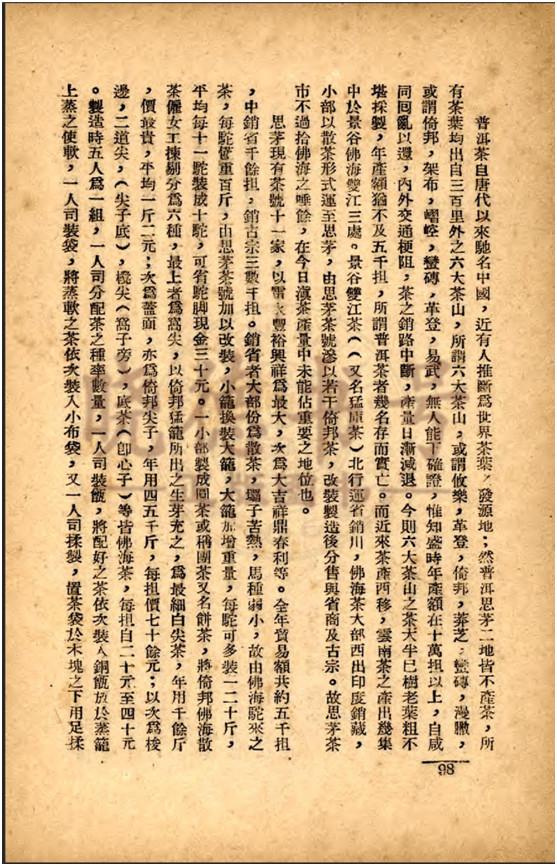 普洱茶自唐代以來馳名中國，近有人推斷爲世界茶葉之發源地；然普洱思茅二地皆不產茶，所
有茶葉均出自三百里外之六大茶山，所謂六大茶山，或謂攸樂，革登，倚邦，莽芝，蠻磚，漫撒，
或謂倚邦，架布，嶍崆，蠻磚，革登，易武，無人能下確證，惟知盛時年產額在十萬担以上，自咸
同回亂以還，內外交通梗阻，茶之銷路中斷，產量日漸減退。今則六大茶山之茶大半已樹老葉粗不
堪採製，年產額猶不及五千担，所謂普洱茶者幾名存而實亡。而近來茶產西移，雲南茶之產出幾集
中於景谷佛海雙江三處。景谷雙江茶（（又名猛庫茶）北行運省銷川，佛海茶大部西出印度銷藏，
小部以散茶形式運至思茅，由思茅茶號滲以若干倚邦茶，改裝製造後分售與省商及古宗。故思茅茶
市不過拾佛海之唾餘，在今日滇茶產量中未能佔重要之地位也。
思茅現有茶號十一家，以雷永豐裕興祥爲最大，次爲大吉祥鼎春利等。全年貿易額共約五千担
，中銷省千餘担，銷古宗三數千担。銷省者大部份爲散茶，壩子苦熱，馬種弱小，故由佛海駝來之
茶，每駝僅重百斤，由思茅茶號加以改裝，小籠換裝大籠，大籠加增重量，每駝可多裝一二十斤，
平均每十一駝裝成十駝，可省駝脚現金三十元。一小部製成圓茶或稱團茶又名餅茶，將倚邦佛海散
茶僱女工揀剔分爲六種，最上者爲窩尖，以倚邦猛籠所出之生芽充之，爲最細白尖茶，年用千餘斤
，價最貴，平均一斤二元；次爲蓋面，亦爲倚邦尖子，年用四五千斤，每担價七十餘元；以次爲梭
邊，二道尖，（尖子底），櫈尖（窩子旁），底茶（卽心子）等皆佛海茶，每担自二十元至四十元
。製造時五人爲一組，一人司分配茶之種率數量，一人司裝甑，將配好之茶依次裝入銅甑放於蒸籠
上蒸之使軟，一人司裝袋，將蒸軟之茶依次裝入小布袋，又一人司揉製，置茶袋於木塊之下用足揉
98